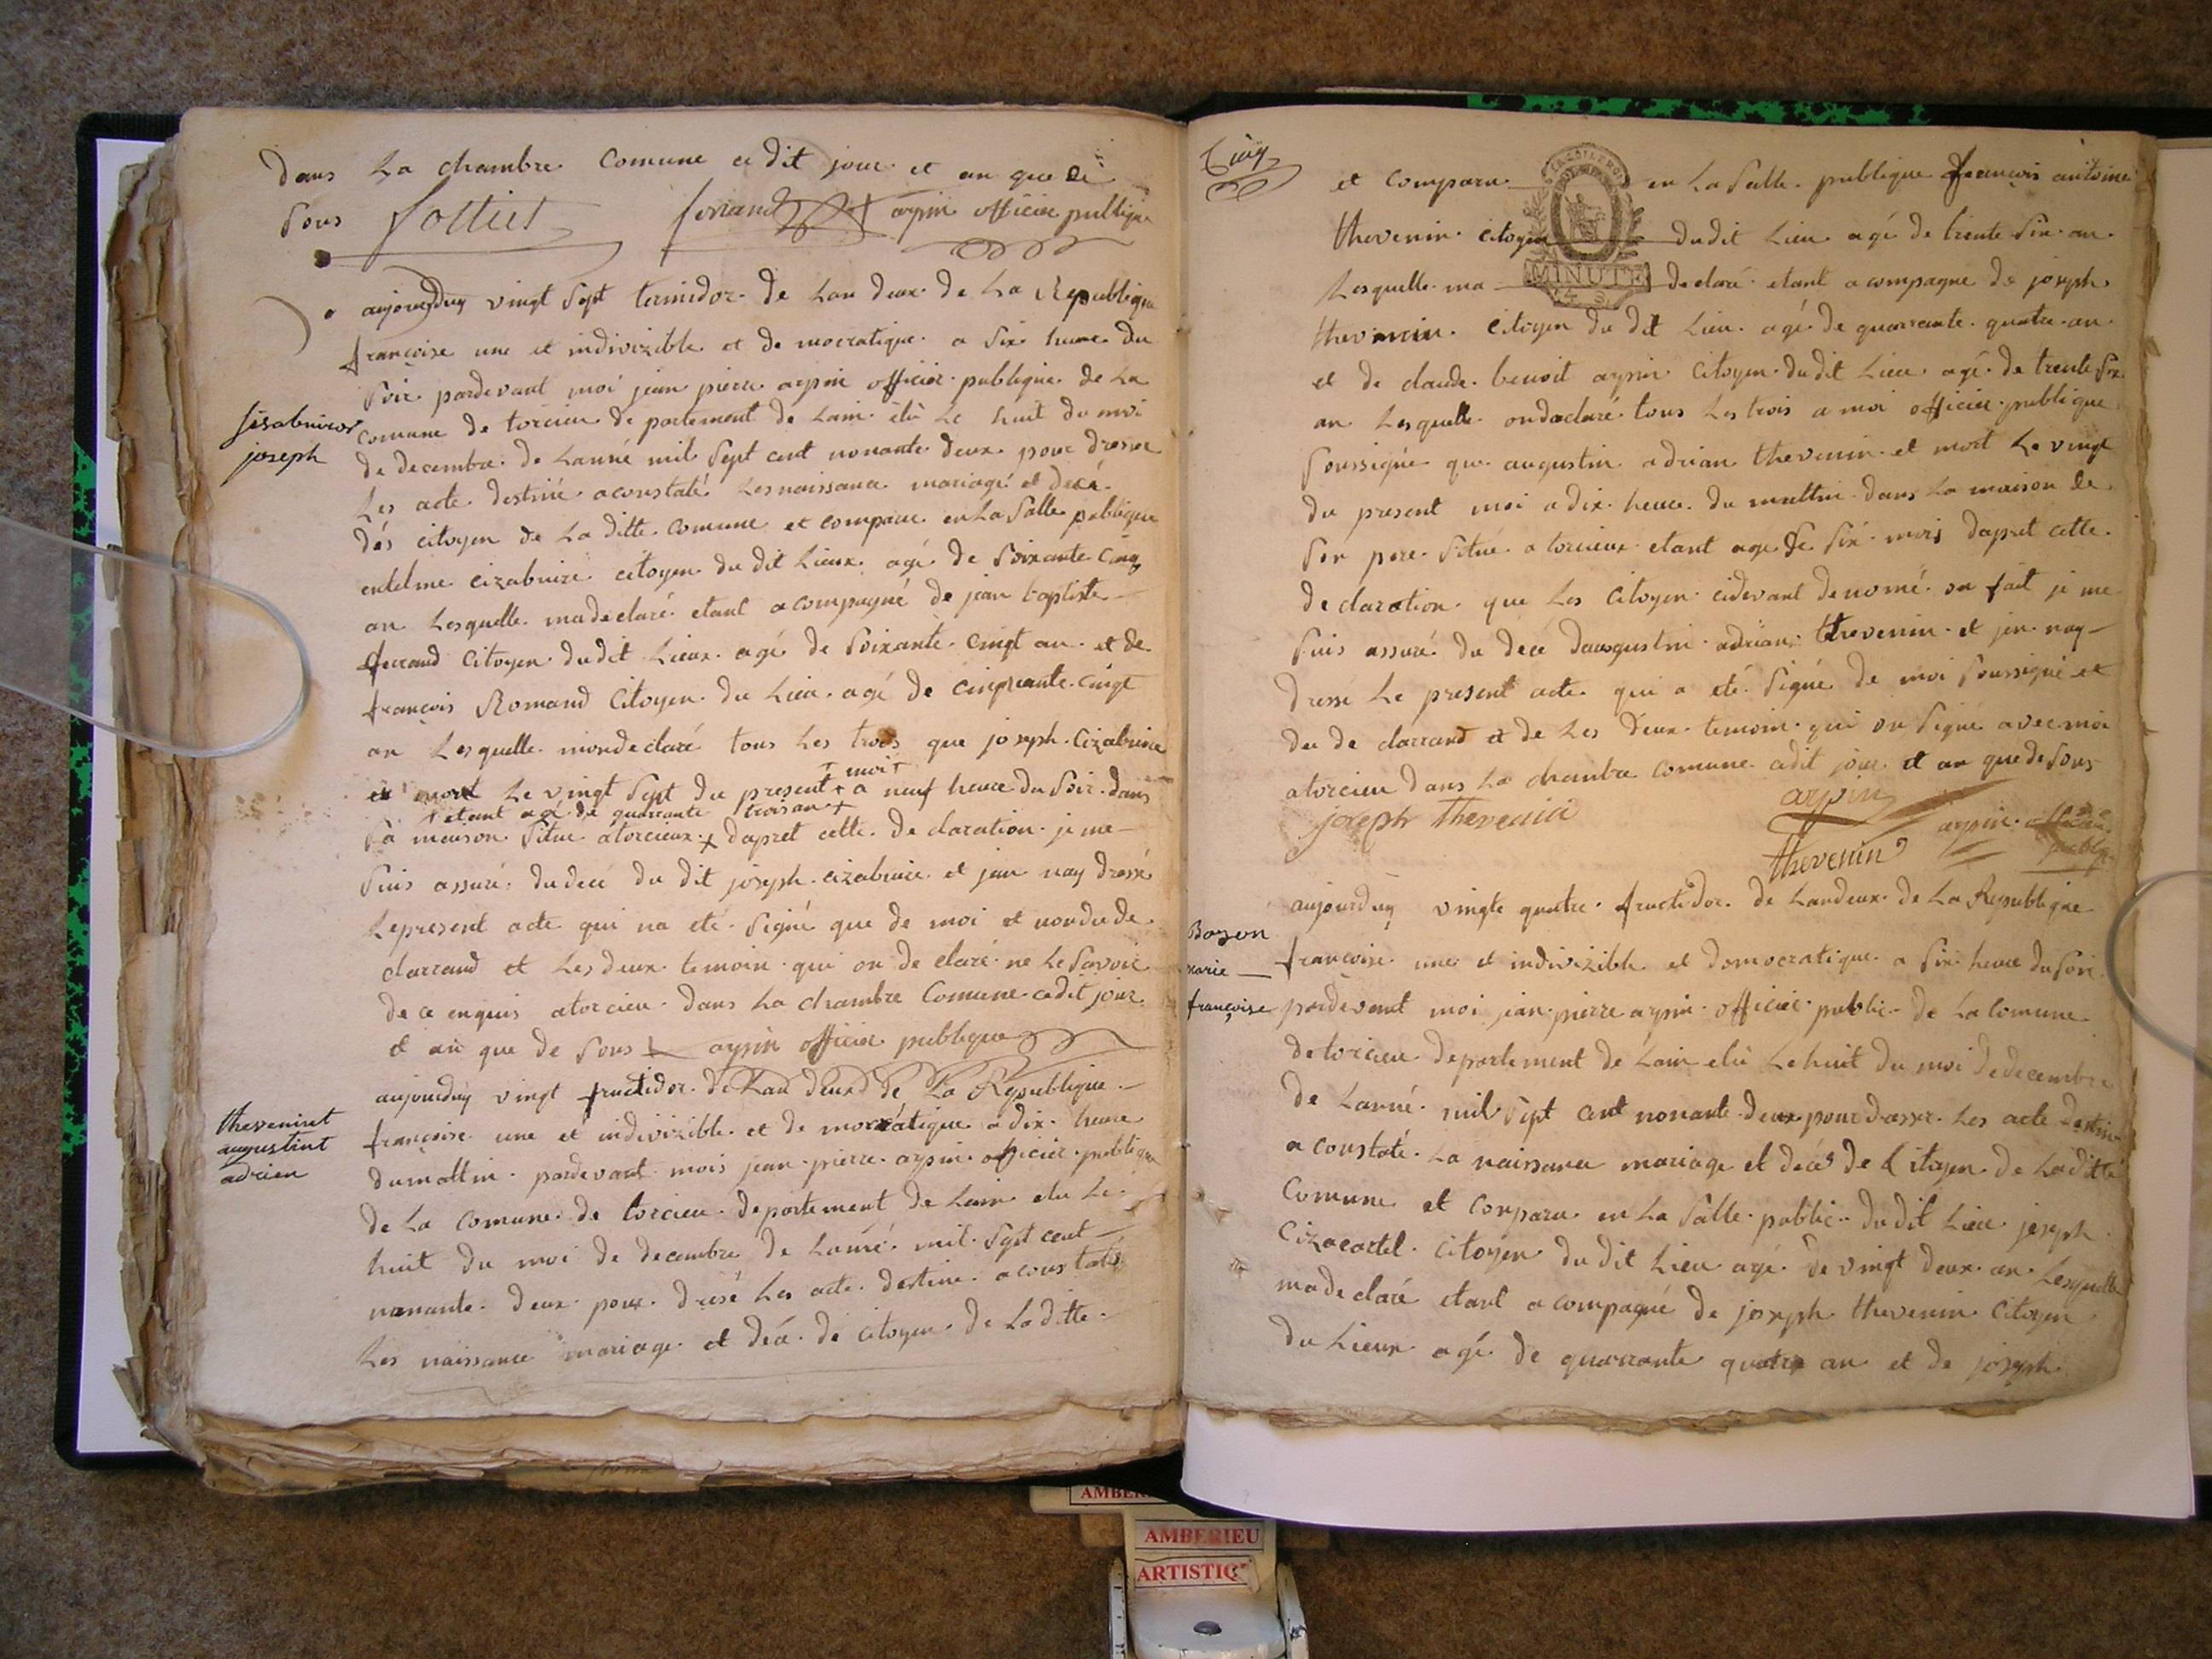 dans La chambre Comune ce dit jour et an que de
sous follict ferrand arpin officier publique
aujourduy vingt Sept termidor de Lan deux de La Republique
françoise une et indivizible et de mocratique a Six heure du
Soir pardevant moi jean pierre arpin officier publique de La
comune de torcieu de partement de Lain élu Le huit du moi
sisabuivor
joseph
de decembre de Lanné mil Sept cent nonante deux pour dresser
Les acte destiné aconstaté Lesnaissance mariagé et décé
dés citoyen de La ditte comune et comparu en La Salle publique
entelme cizabuire citoyen du dit Lieux agé de Soixante Cinq
an Lesquelle madeclaré etant acompagné de jean baptiste
ferrand Citoyen dudit Lieux agé de Soixante cingt an et de
françois Romand Citoyen du Lieu agé de cinquante cingt
an Lesquelle mondeclaré tous Les trois que joseph Cizabuire
et mort Le vingt Sept du present + moi + a neuf heure du Soir dans
+ etant agé de quarrante troisan +
Sa maison Situe atorcieux + dapret cette de claration je me
Suis assuré du decé du dit joseph cizabuire et jen nay dressé
Lepresent acte qui na eté Signé que de moi et nondude
clarrand et Lesdeux temoin qui on de claré ne Le Savoir
de ce enquis atorcieu dans La chambre Comune cedit jour
et an que de Sous arpin officier publique
aujourduy vingt fructidor de Lan deux de La Republique
thevenint
augustint
adrien
françoise une et indivizible et de mocratique a dix heure
dumattin pardevant mois jean pierre arpin officier publique
de La comune de torcieu departement de Lain elu Le
huit du moi de decembre de Lanné mil Sept cent
nonante deux pour dresé Les acte destine aconstaté
Les naissance mariage et décé de citoyen de Laditte
Cinq
et comparu en La Salle publique françois antoine
thevenin citoyen dudit Lieu agé de trente Six an
MINUTE
Lesquelle ma declaré etant acompagne de joseph
thevenin Citoyen du dit Lieu agé de quarrante quatre an
et de claude benoit arpin Citoyen dudit Lieu agé de trente Six
an Lesquelle ondeclaré tous Les trois a moi officier publique
Soussigné que augustin adrian thevenin et mort Le vingt
du present moi adix heure du mattin dans La maison de
Son pere Situé a torcieux etant age de Six mois dapret cette
de claration que Les Citoyen cidevant denomé on fait je me
Suis assuré du decé daugustin adrian thevenin et jen nay
dressé Le present acte qui a eté Signé de moi Soussigné et
du de clarrand et de Les deux temoin qui on Signé avec moi
atorcieu dans La chambre comune cedit jour et an quedesous
joseph thevenin arpin
thevenin arpin officier
public
aujourduy vingte quatre fructidor de Landeux de La Republique
Bozon
marie
françoise
françoise une et indivizible et democratique a Six heure du Soir
pardevant moi jean pierre arpin officier public de La Comune
detorcieu departement de Lain elu Lehuit du moi dedecembre
de Lanné mil Sept cent nonante deux pour dresser Les acte destiné
a constaté La naissance mariage et decés de Citoyen de Laditte
Comune et Conparu en La Salle public dudit Lieu joseph
Cizacartel Citoyen du dit Lieu agé de vingt deux an Lesquelle
madeclaré etant acompagné de joseph thevenin Citoyen
du Lieux agé de quarrante quatre an et de joseph
AMBERIEU
ARTISTIQ